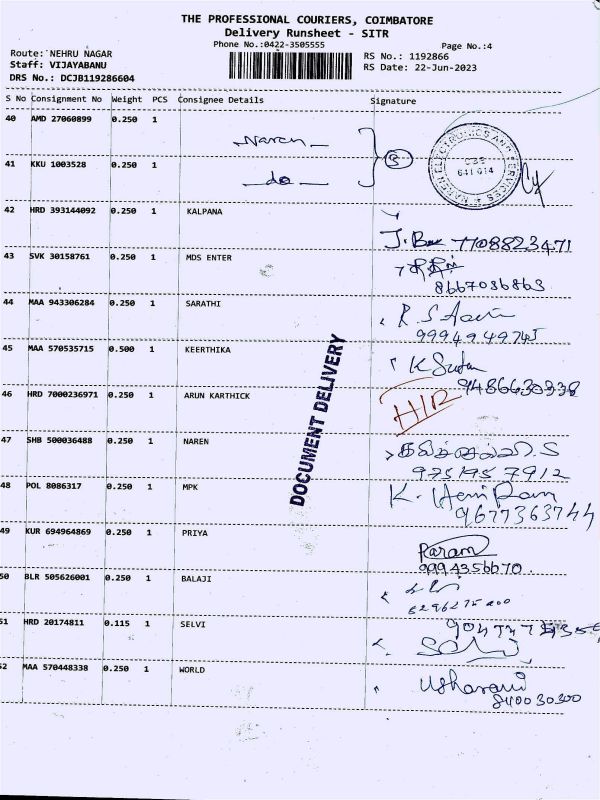 THE PROFESSIONAL COURIERS, COIMBATORE
Delivery Runsheet - SITR
Phone No.:0422-3505555
Page No.:4
Route: NEHRU NAGAR
RS No.: 1192866
Staff: VIJAYABANU
RS Date: 22-Jun-2023
DRS No.: DCJB119286604
S No Consignment No Weight PCS Consignee Details Signature
40 AMD 27060899 0.250 1
Naren
41 KKU 1003528 0.250 1
do
42 HRD 393144092 0.250 1 KALPANA
7708823471
43 SVK 30158761 0.250 1 MDS ENTER
8667086863
44 MAA 943306284 0.250 1 SARATHI
9994949745
45 MAA 570535715 0.500 1 KEERTHIKA
9486630338
46 HRD 7000236971 0.250 1 ARUN KARTHICK
47 SHB 500036488 0.250 1 NAREN
9751957912
48 POL 8086317 0.250 1 MPK
K. Hem Ram
9677363744
49 KUR 694964869 0.250 1 PRIYA
Param
9994356670
50 BLR 505626001 0.250 1 BALAJI
51 HRD 20174811 0.115 1 SELVI
52 MAA 570448338 0.250 1 WORLD
Usharani
DOCUMENT DELIVERY